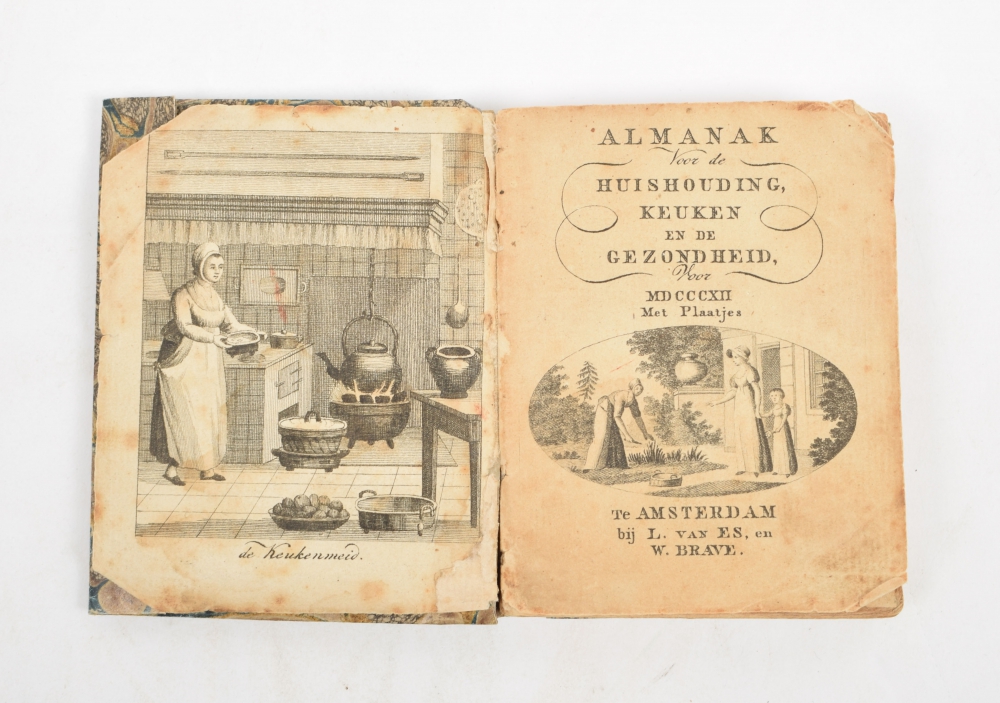 de Keukenmeid.
ALMANAK
Voor de
HUISHOUDING,
KEUKEN
EN DE
GEZONDHEID,
Voor
MDCCCXII
Met Plaatjes
Te AMSTERDAM
bij L. VAN ES, en
W. BRAVE.